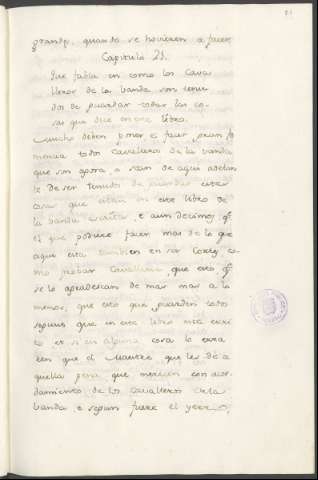 21
grande, quando se hovieren a facer
Capitulo 21.
Que fabla en como los Cava
lleros de la banda son tenu
dos de guardar todas las co
sas que dice en este libro.
Mucho deben poner e facer gran fe
mencia todos cavalleros de la banda
que son agora, o seran de aqui adelan
te de ser tenudos de guardar estas
cosas que estan en este libro de
la banda escritas, e aun decimos q̃
el que podiere facer mas de lo que
aqui esta tambien en ser Cortes co
mo probar Cavalleria que esto q̃
se lo agradescan de mas mas a lo
menos, que esto que guarden todo
segund que en este libro esta escri
to et si en alguna cosa lo erra
ren que el Maestre que les dé a
quella pena que merecen con acor
damiento de los cavalleros de la
banda e segun fuere el yerro,